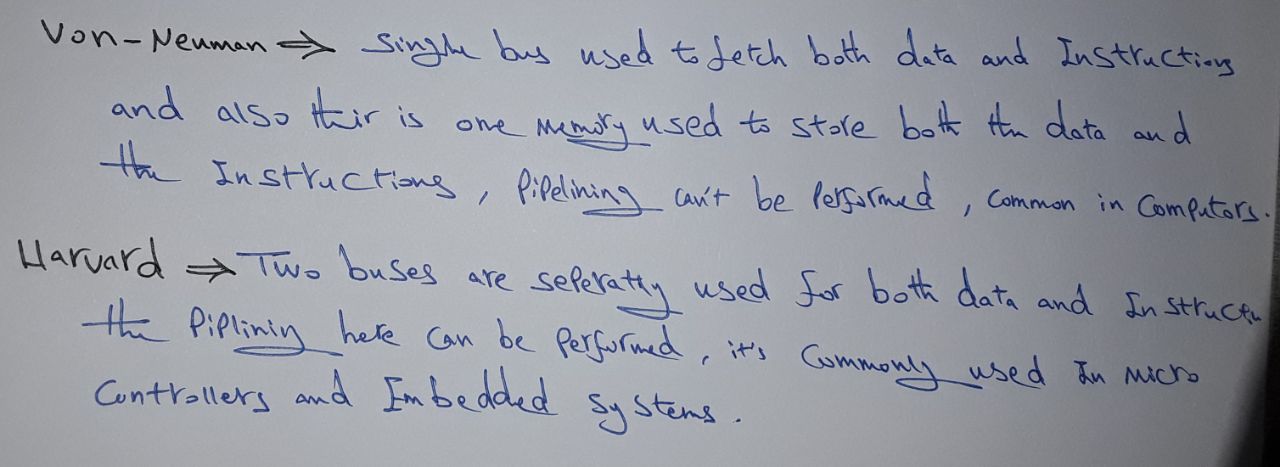 Von-Neuman ⇒ Single bus used to fetch both data and Instructions
and also thir is one memory used to store both the data and
the Instructions, Pipelining can't be Performed, Common in Computors.
Harvard ⇒ Two buses are seperatly used for both data and Instructin
the Piplinin here can be Performed, it's Commonly used In micro
Controllers and Imbedded systems.